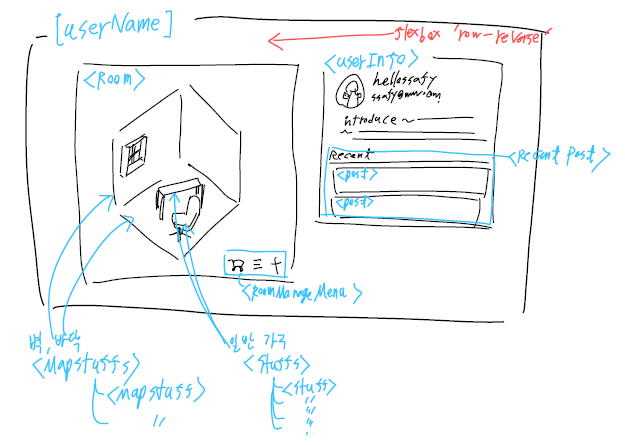 [userName]
flexbox 'row-reverse'
<userInfo>
<Room>
hellossafy
introduce ~
~
Recent
<Recent Post>
<post>
<post>
<RoomManageMenu>
벽, 바닥
<Mapstuffs>
<mapstuff>
〃
일반 가구
<stuffs>
<stuff>
〃
〃
〃